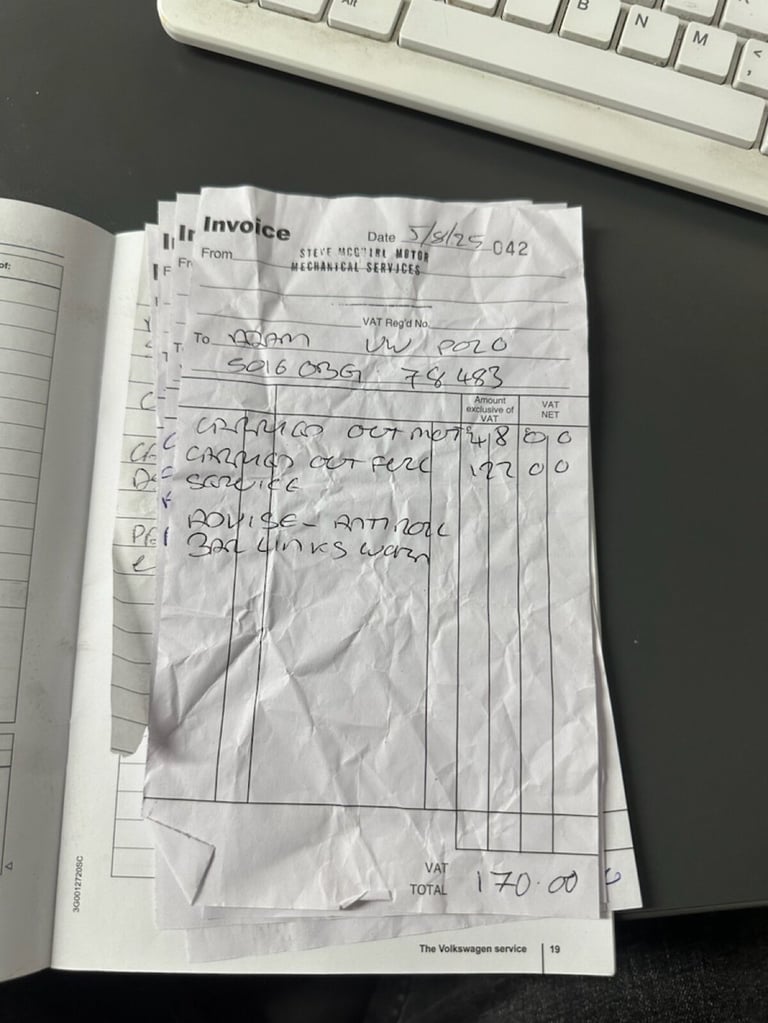 Alt
B
N
M
<
,
Invoice
Date 5/8/25 042
From STEVE MCGUIRL MOTOR
MECHANICAL SERVICES
VAT Reg'd No.
To ADAM VW POLO
SO16 OBG 78483
Amount exclusive of VAT
VAT NET
CARRIED OUT MOT 48 00
CARRIED OUT FULL 122 00
SERVICE
ADVISE - ANTIROLL
BAR LINKS WORN
VAT
TOTAL 170.00
3G0012720SC
The Volkswagen service 19